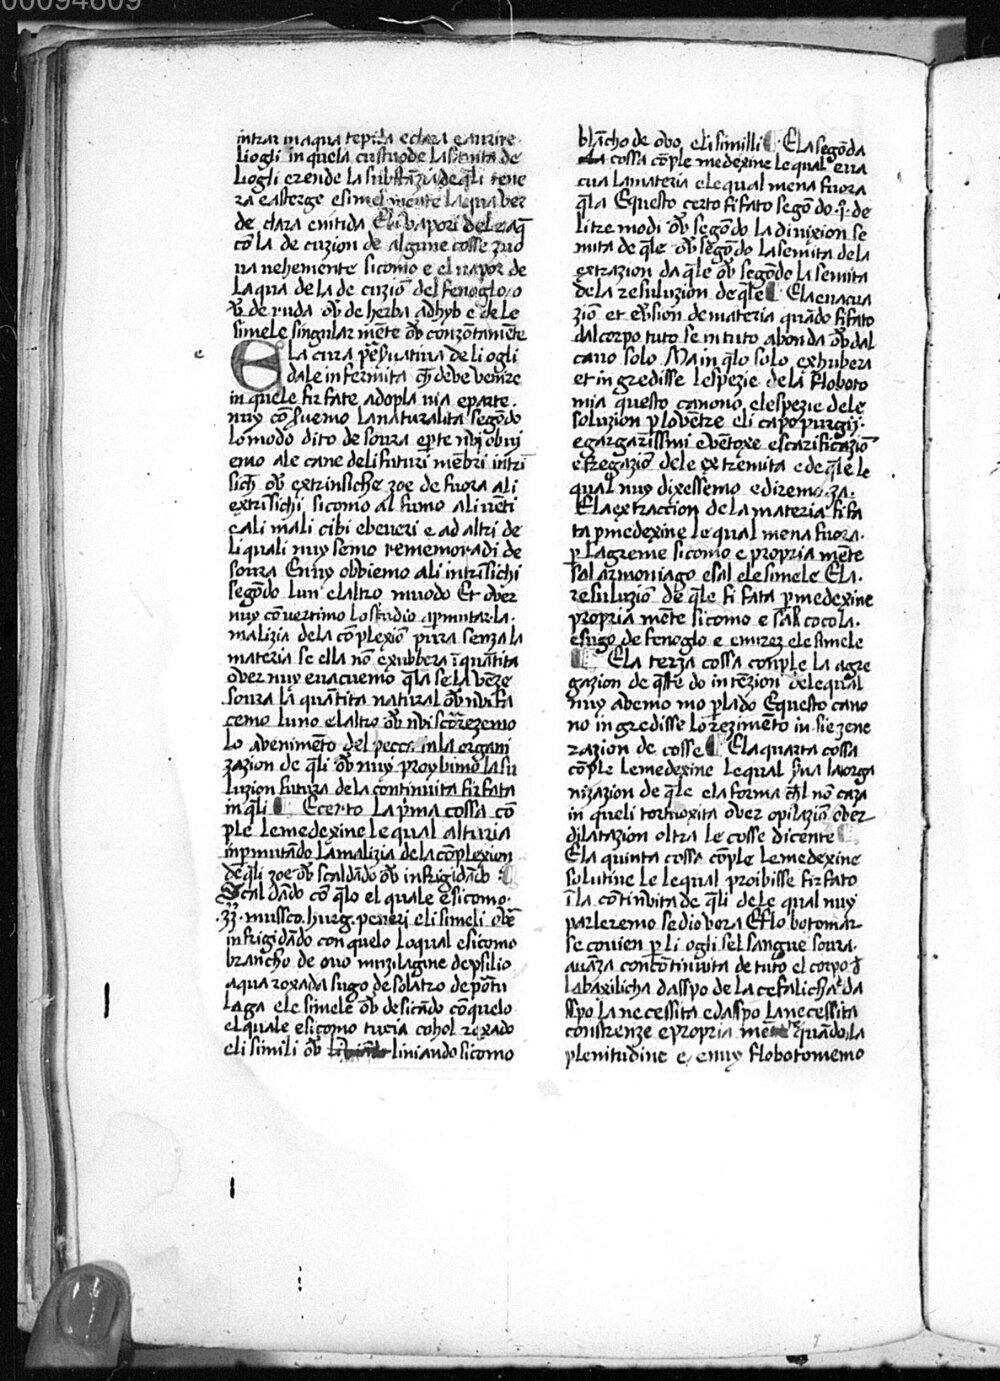 00094609
intrar in aqua tepida e clara e aurire
li ogli in quela custuode la semita de
li ogli e rende la substãzia de q̃li tene
ra e asterge e simelmente laqua ber
de clara e nitida E li vapori dele aq̃
cõ la decuzion de algune cosse zud
na vehemente sicomo e el uapor de
laqua dela decuziõ del fenoglo o
ṽ de ruda oṽ de herba adhyb e de le
simele singular mẽte oṽ conzõtamẽte
e
Ela cura p̃s̃uatiua de li ogli
dale infermita ch̃ debe venire
in quele fir fate adopla uia e parte
nuy cõs̃uemo la naturalita segõdo
lo modo dito de soura e p̱te nui obuj
emo ale cane deli futuri mẽbri intrĩ
sich̃ oṽ extrinsiche zoe de fuora ali
extrĩsichi sicomo al fumo ali uẽti
e ali mali cibi e beueri e ad altri de
li quali nuy semo rememoradi de
soura E nuy obbiemo ali intrĩsichi
segõdo lun e laltro muodo Et ouer
nuy cõuertimo lo studio a p̱mutar la
malizia dela cõplexiõ pura senza la
materia se ella nõ exubbera ĩ quãtita
ouer nuy euacuemo q̃la se la vẽze
soura la quãtita natural oṽ nui fa
cemo luno e laltro oṽ nui scõrezemo
lo avenimẽto del pecca in la organi
zazion de q̃li oṽ nuy proybimo la su
luzion futura dela continuita fir fata
in q̃li ¶ E certo la p̃ma cossa cõ
ple le medexine le qual alturia
in p̱mutãdo la malizia de la cõplexion
de q̃li zoe oṽ scaldãdo oṽ infrigidãdo
Scaldãdo cõ q̃lo el quale e sicomo
zz. mussco. hurg. peneri e li simeli oṽ
infrigidãdo con quelo lo qual e sicomo
brancho de ouo muzilagine de psilio
aqua roxada sugo de solatro de põtu
laga e le simele oṽ desicãdo cõ quelo
el quale e sicomo tucia cohol roxado
e li simili oṽ liniando sicomo
blãcho de ovo e li simili ¶ E la segõda
cossa cõple medexine le qual eua
cua la materia e le qual mena fuora
q̃la E questo certo fi fato segõdo .q̃. de
li tre modi oṽ segõdo la diuixion se
mita de q̃le oṽ segõdo la semita dela
extrazion da q̃le oṽ segõdo la semita
dela resuluzion de q̃le ¶ E la euacua
ziõ et eṽsion de materia quãdo fi fato
dal corpo tuto se in tuto abonda oṽ dal
cauo solo Ma in q̃lo solo exhubera
et ingredisse le spezie de la floboto
mia questo canono e le spezie dele
soluzion p̱ lo vẽtre e li capo purgij
e gargarissmi e vẽtoxe e scarificaziõ
e fregaziõ dele extremita e de q̃le le
qual nuy dixessemo e diremo za
E la extraccion de la materia fi fa
ta p̱ medexine le qual mena fuora
p̱ lagreme sicomo e propria mẽte
sal armoniago e sal e le simele E la
resuluziõ de q̃le fi fata p̱ medexine
propria mẽte sicomo e sar cocola
e sugo de fenoglo e e le simele
¶ E la terza cossa conple la agre
gazion de q̃ste do intẽzion dele qual
nuy abemo mo p̱lado E questo cano
no ingredisse lo rezimẽto in sie zene
razion de cosse ¶ E la quarta cossa
cõple le medexine le qual s̃ua la orga
nizazion de q̃le e la forma ch̃l nõ caza
in queli tortuoxita over opilaziõ over
dilatazion oltra le cosse dicente ¶
E la quinta cossa cõple le medexine
solutiue le le qual proibisse fir fato
ĩ la cõtinuita de q̃li dele qual nuy
parleremo se dio vora E flobotomar
se couien p̱ li ogli se l sangue soura
auãza con cõtinuita de tuto el corpo d̃
la baxilicha dasspo de la cefalicha e da
sspo la necessita e dasspo la necessita
constrenze e propria mẽte quãdo la
plenitudine e e nuy flobotomemo